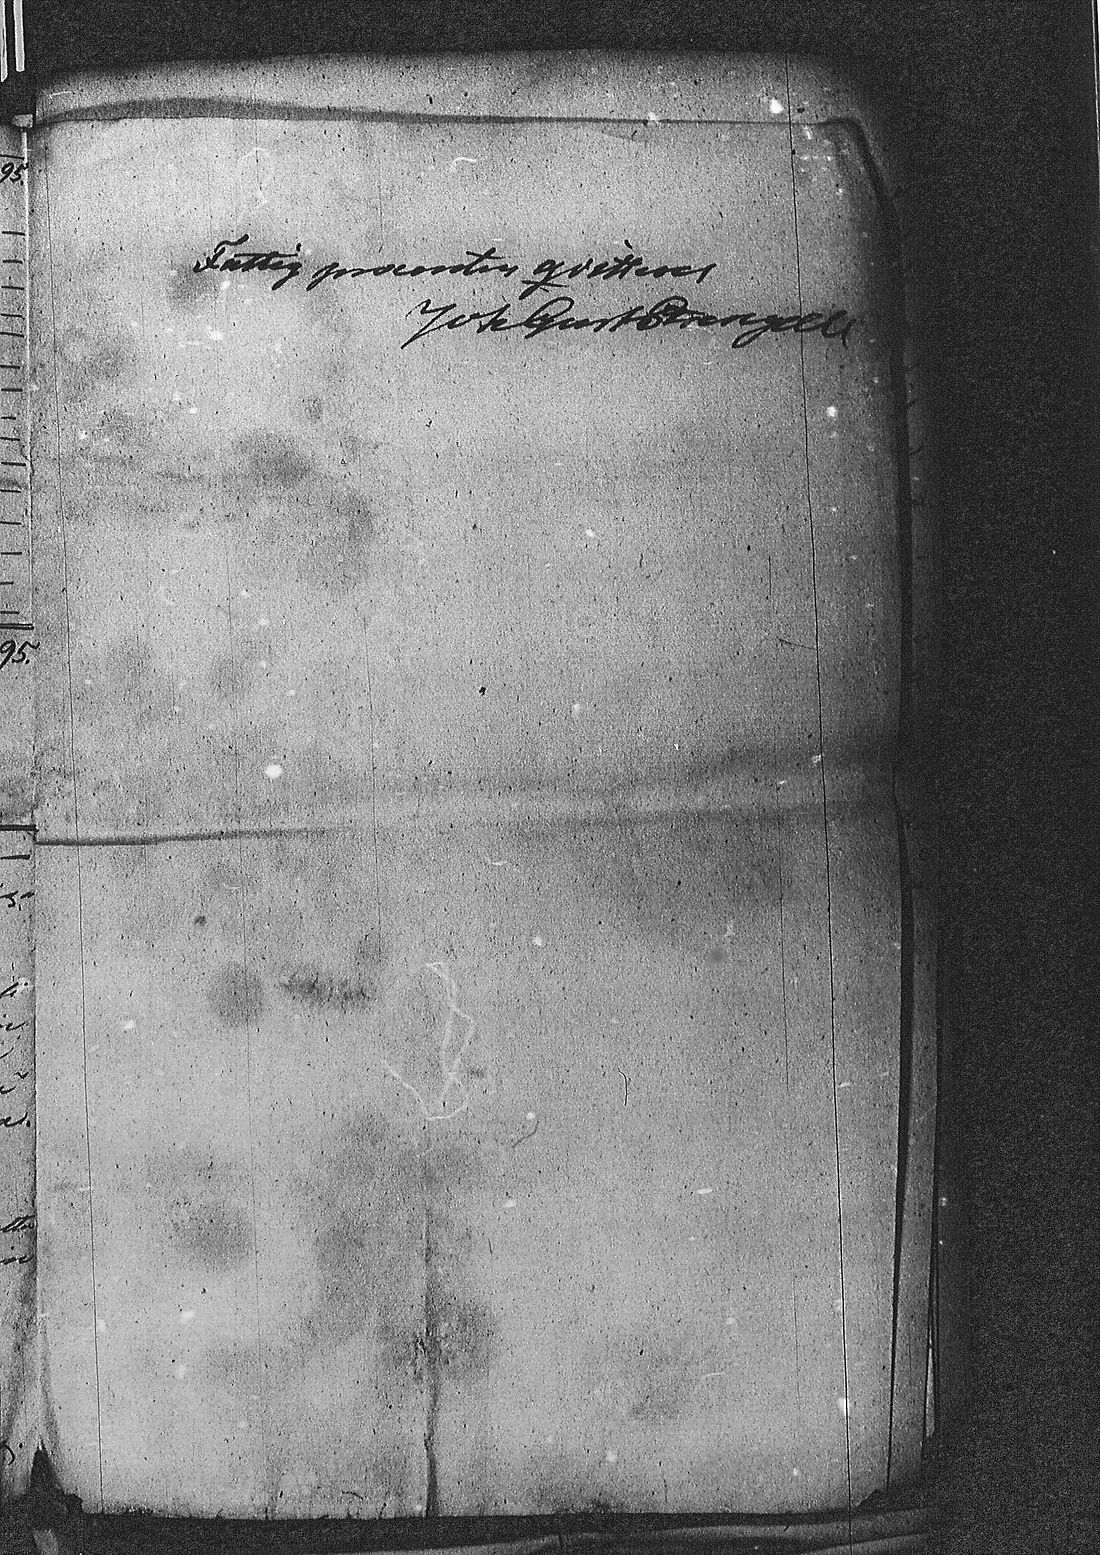 95.
Fattig procenten qvitteras
Joh Gust Wrangell
95.